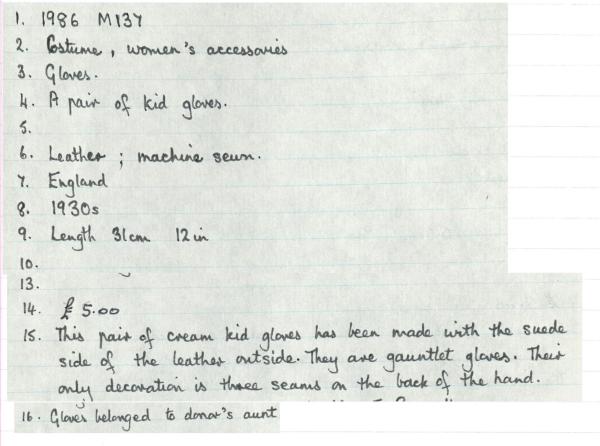 1. 1986 M137
2. Costume, women's accessories
3. Gloves.
4. A pair of kid gloves.
5.
6. Leather; machine sewn.
7. England
8. 1930s
9. Length 31cm 12in
10.
13.
14. £5.00
15. This pair of cream kid gloves has been made with the suede
side of the leather outside. They are gauntlet gloves. Their
only decoration is three seams on the back of the hand.
16. Gloves belonged to donor's aunt